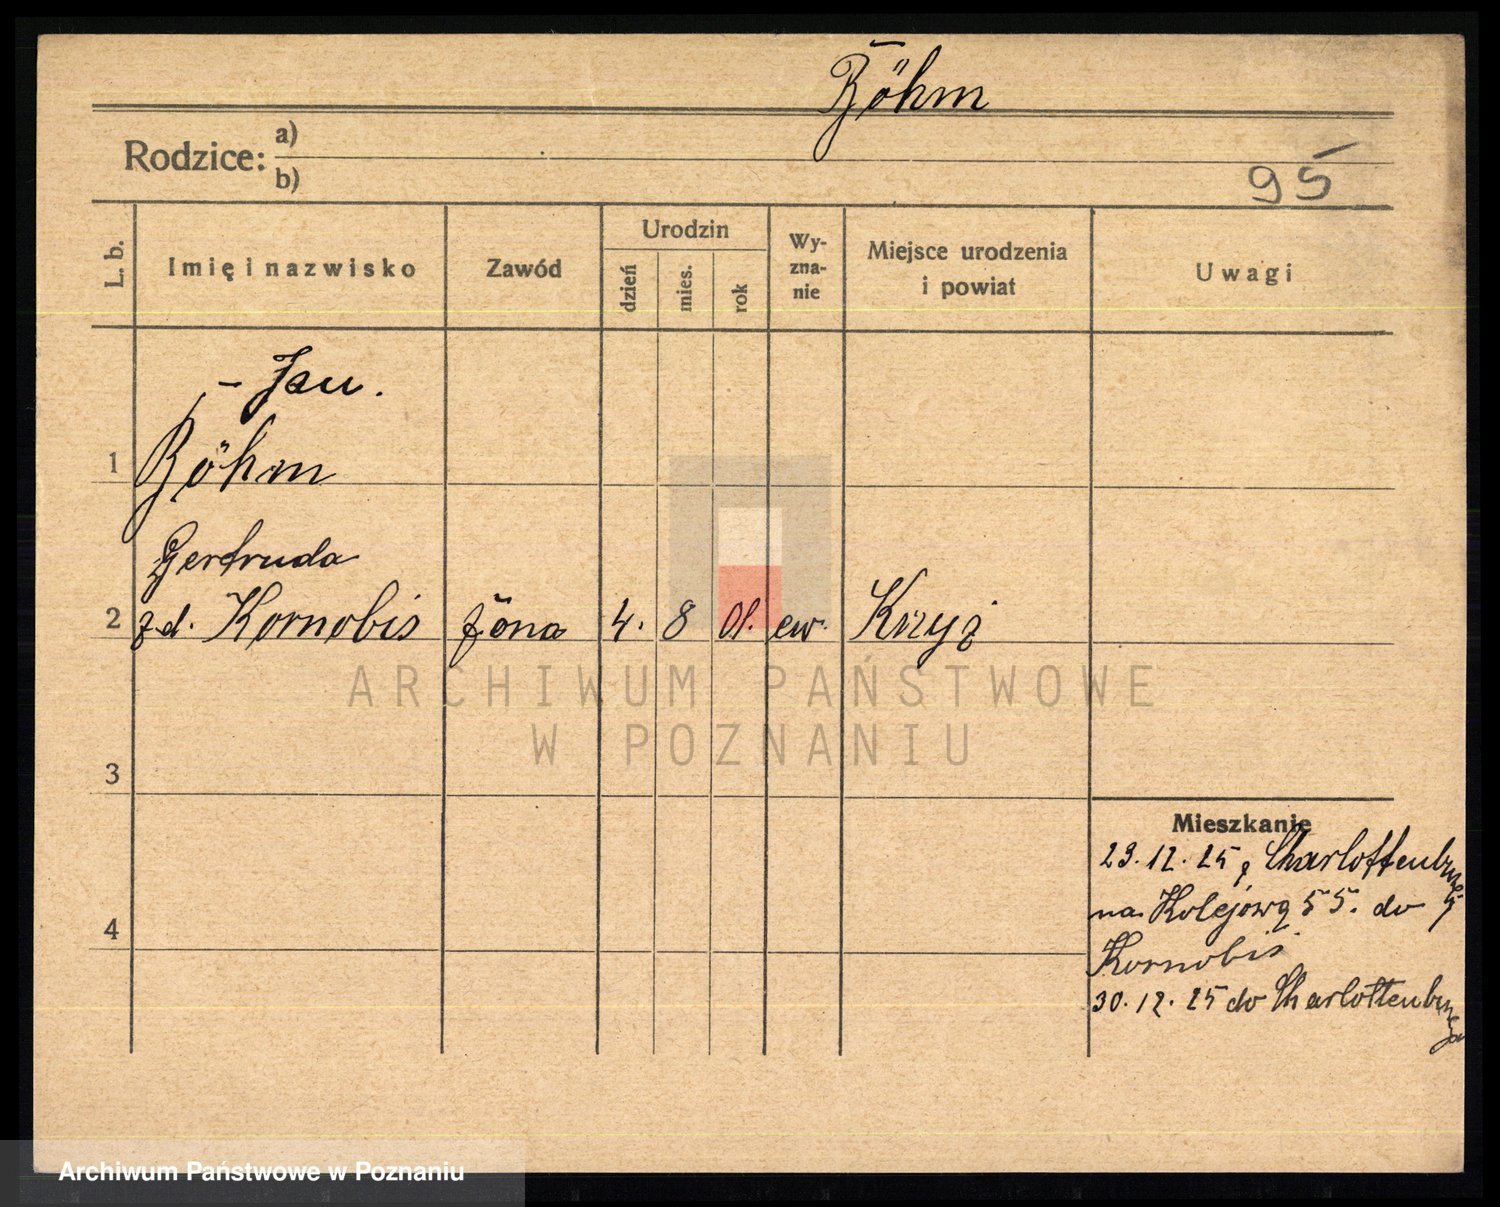 Böhm
Rodzice: a)
b)
95
L. b.
Imię i nazwisko
Zawód
Urodzin
dzień
mies.
rok
Wy-
zna-
nie
Miejsce urodzenia
i powiat
Uwagi
- Jan.
1 Böhm
Gertruda
2 z d. Kornobis żona 4. 8 01. ew. Krzyż
ARCHIWUM PAŃSTWOWE
W POZNANIU
3
Mieszkanie
23.12.25 z
na Kolejową 55. do
4
Kornobis
30.12.25 do
Archiwum Państwowe w Poznaniu